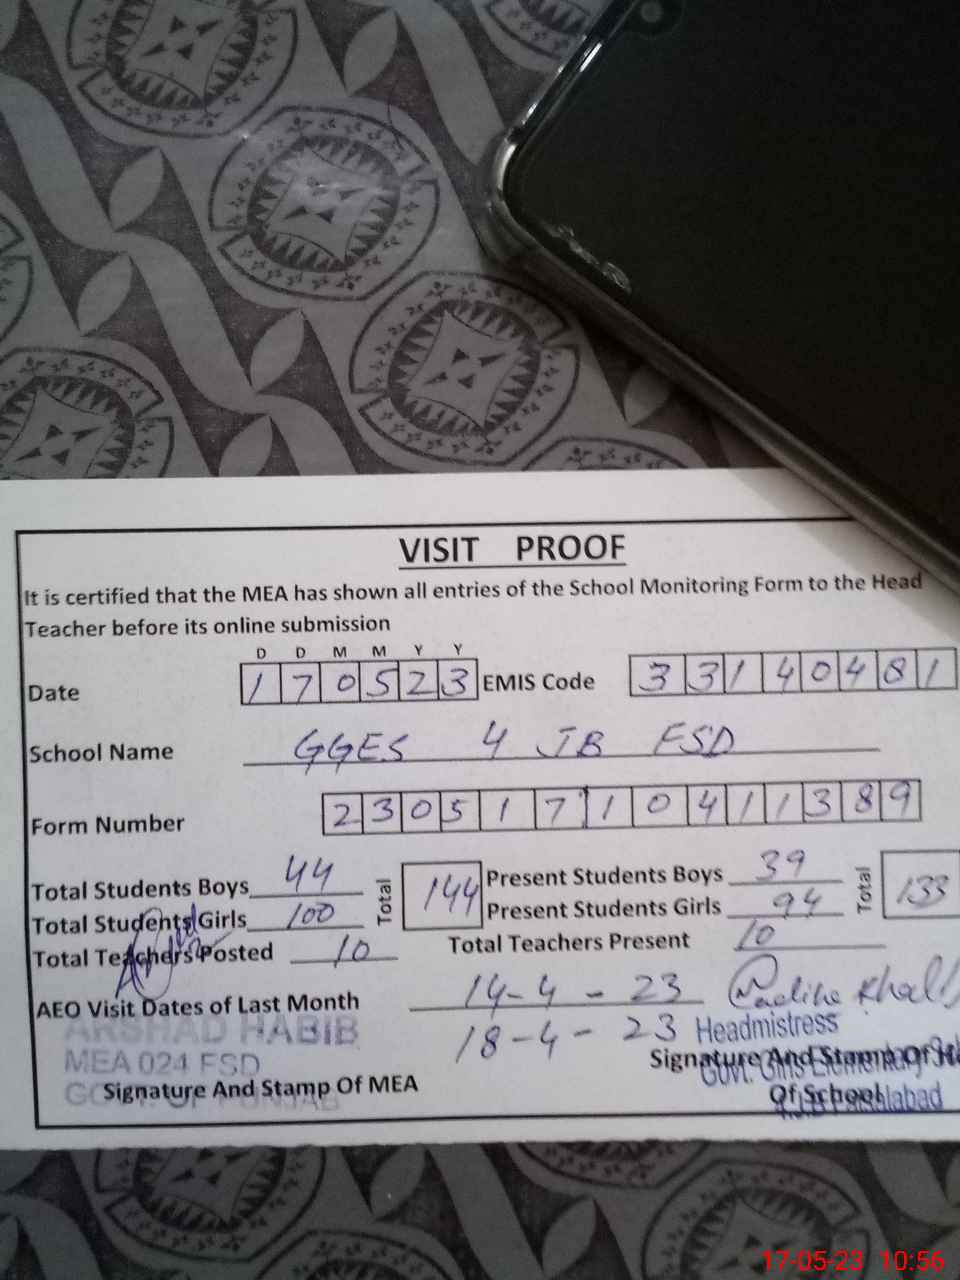 VISIT PROOF
It is certified that the MEA has shown all entries of the School Monitoring Form to the Head
Teacher before its online submission
D D M M Y Y
Date 1 7 0 5 2 3 EMIS Code 3 3 1 4 0 4 8 1
School Name GGES 4 JB FSD
Form Number 2 3 0 5 1 7 1 0 4 1 1 3 8 9
Total Students Boys 44 Total 144 Present Students Boys 39 Total 133
Total Students Girls 100 Present Students Girls 94
Total Teachers Posted 10 Total Teachers Present 10
AEO Visit Dates of Last Month 14-4-23
18-4-23
ARSHAD HABIB
MEA 024 FSD
GOVT. OF PUNJAB
Signature And Stamp Of MEA
Headmistress
Signature And Stamp Of
Govt. Girls Elementary
Of School
Faisalabad
17-05-23 10:56